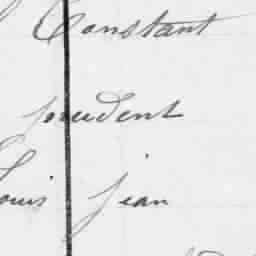 Constant
prudent
Louis Jean